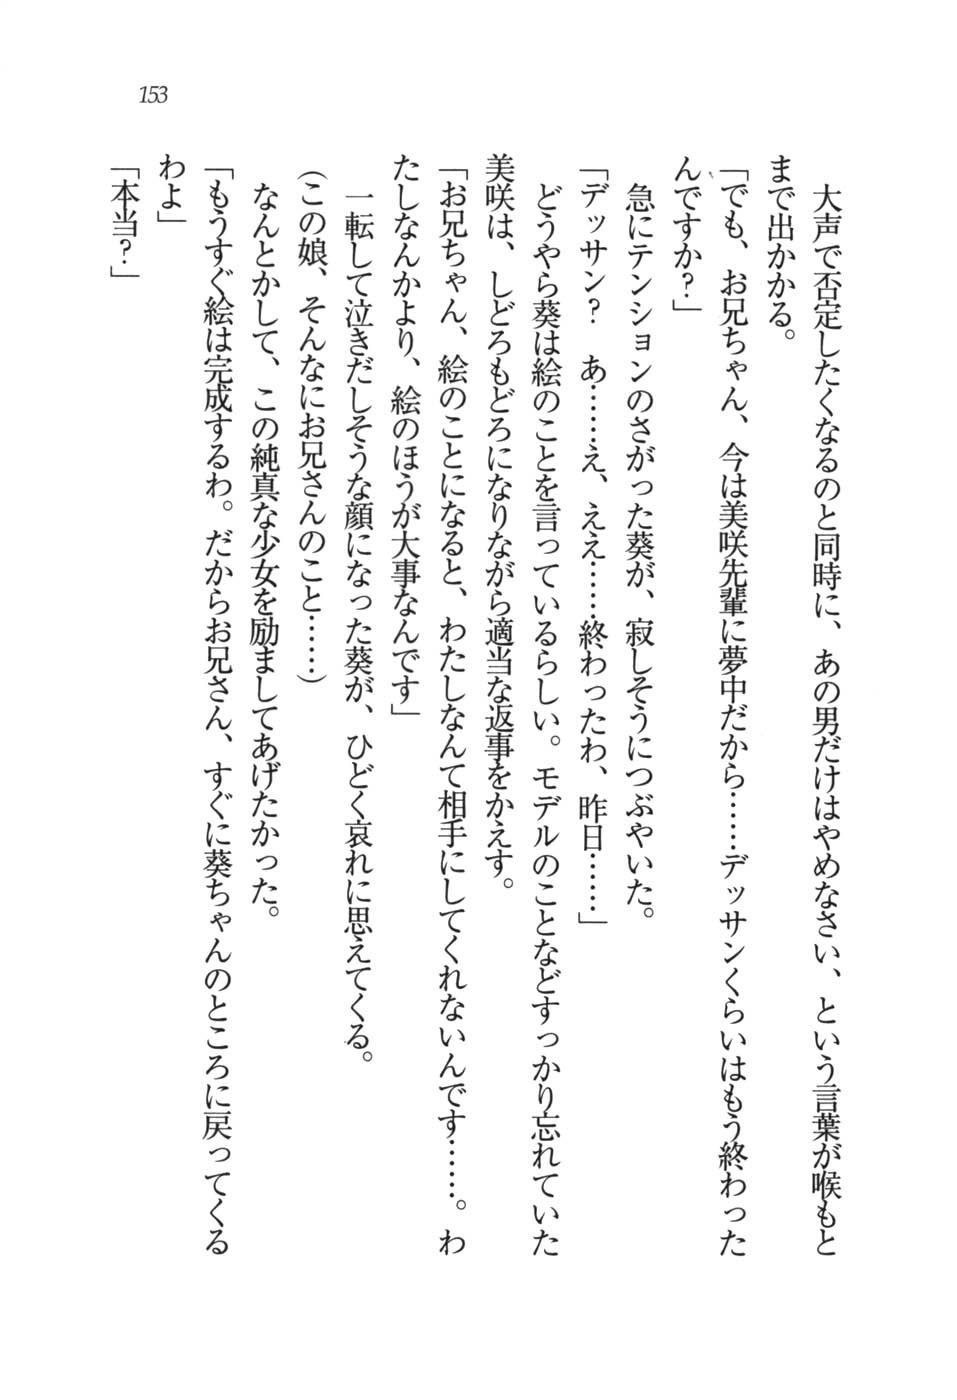 153
　大声で否定したくなるのと同時に、あの男だけはやめなさい、という言葉が喉もと
まで出かかる。
「でも、お兄ちゃん、今は美咲先輩に夢中だから……デッサンくらいはもう終わった
んですか？」
　急にテンションのさがった葵が、寂しそうにつぶやいた。
「デッサン？　あ……え、ええ……終わったわ、昨日……」
　どうやら葵は絵のことを言っているらしい。モデルのことなどすっかり忘れていた
美咲は、しどろもどろになりながら適当な返事をかえす。
「お兄ちゃん、絵のことになると、わたしなんて相手にしてくれないんです……。わ
たしなんかより、絵のほうが大事なんです」
　一転して泣きだしそうな顔になった葵が、ひどく哀れに思えてくる。
（この娘、そんなにお兄さんのこと……）
　なんとかして、この純真な少女を励ましてあげたかった。
「もうすぐ絵は完成するわ。だからお兄さん、すぐに葵ちゃんのところに戻ってくる
わよ」
「本当？」